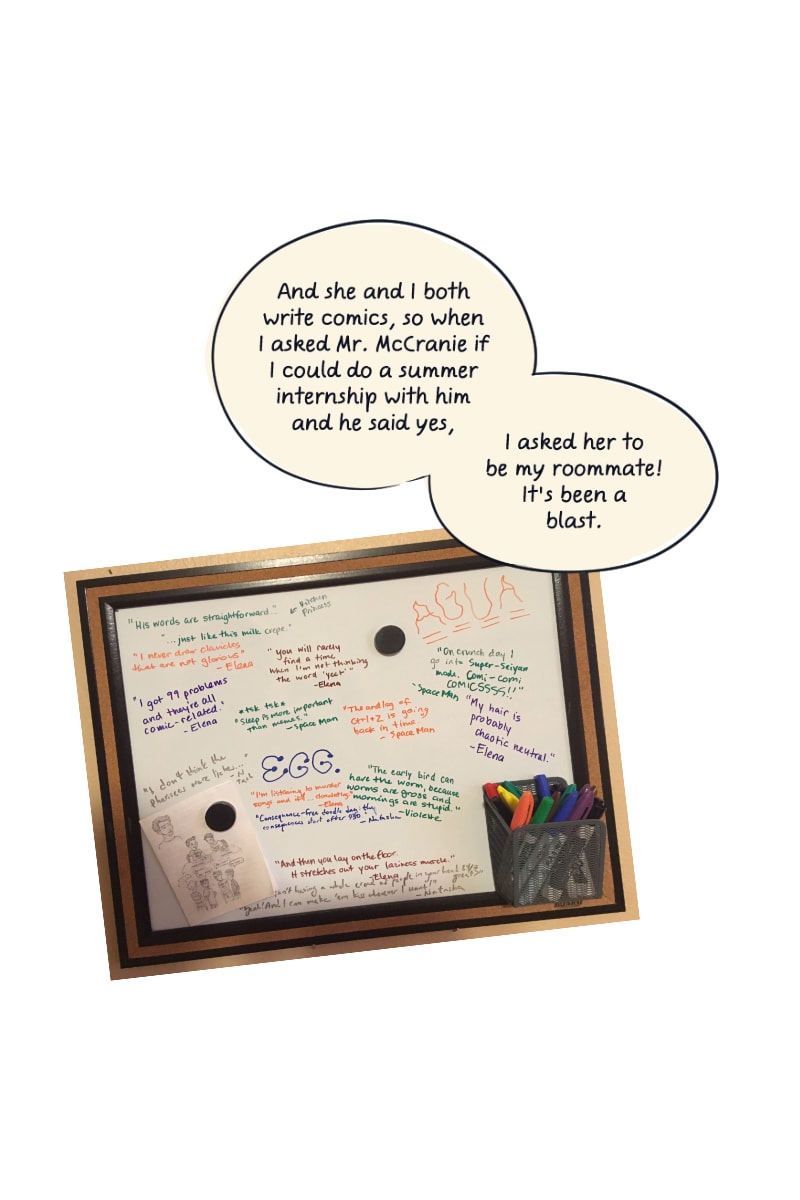 And she and I both
write comics, so when
I asked Mr. McCranie if
I could do a summer
internship with him
and he said yes,
I asked her to
be my roommate!
It's been a
blast.
"His words are straightforward..."
"...just like this milk crepe."
Kitchen
Princess
AGUA
"I never draw clavicles
that are not glorious"
- Elena
"you will rarely
find a time
when I'm not thinking
the word 'yeet'"
-Elena
"On crunch day I
go into Super-Seiyan
mode. Comi-comi
COMICSSSS!!"
- Space Man
"I got 99 problems
and they're all
comic-related."
- Elena
*tsk tsk*
"Sleep is more important
than memes."
- Space Man
"The analog of
Ctrl+Z is going
back in time."
- Space Man
"My hair is
probably
chaotic neutral."
- Elena
"I don't think the
pharisees were
EGG.
"I'm listening to murder
songs and
- Elena
"Consequence-free doodle day: the
consequences start after 930"
- Natasha
"The early bird can
have the worm, because
worms are gross and
mornings are stupid."
- Violette
"And then you lay on the floor.
It stretches out your laziness muscle."
- Elena
having a whole crowd of people in your head
"Yeah! And I can make 'em kiss whenever I want!"
- Natasha